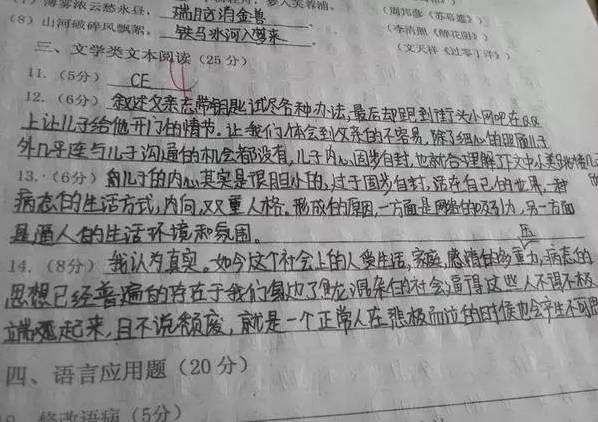 (7) 薄雾浓云愁永昼, 瑞脑消金兽 (李清照《醉花阴》)
(8) 山河破碎风飘絮, 铁马冰河入梦来 (文天祥《过零丁洋》)
三、文学类文本阅读 (25分)
11. (5分) CE
12. (6分) 叙述父亲忘带钥匙试尽各种办法,最后却跑到街头小网吧在QQ
上让儿子给他开门的情节。让我们体会到父亲的不容易,除了细心的照顾儿子
外几乎连与儿子沟通的机会都没有,儿子内心固步自封,也就合理解了文中
13. (6分) 儿子的内心其实是很胆小的,过于固步自封,活在自己的世界,一种
病态的生活方式,内向,双重人格。形成的原因,一方面是网络的吸引力,另一方面
是逼人的生活环境和氛围。
14. (8分) 我认为真实。如今这个社会上的人受生活,家庭,感情的多重压力,病态的
思想已经普遍的存在于我们身边了,复杂的社会逼得这些人不得不极
端起来,且不说颓废,就是一个正常人在悲极而泣的时候也会产生不可思
四、语言应用题 (20分)
修改语病 (5分)